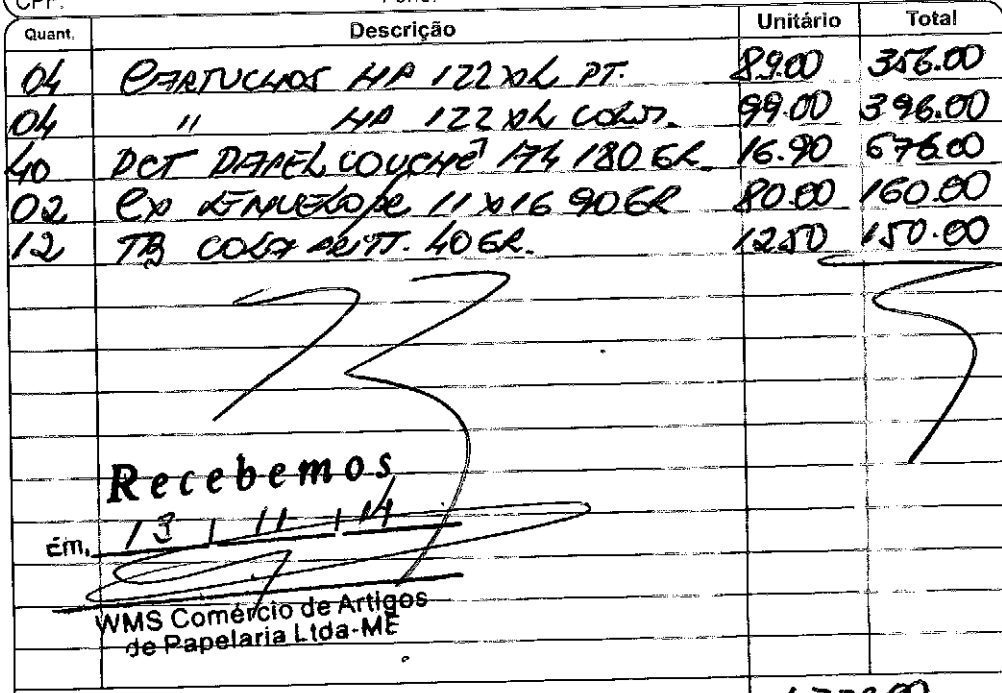 CPF:
Quant. Descrição Unitário Total
04 CARTUCHOS HP 122 XL PT. 89.00 356.00
04 " HP 122 XL COLOR. 99.00 396.00
40 PCT PAPEL COUCHÊ A4 180 GR 16.90 676.00
02 CX ENVELOPE 11X16 90 GR 80.00 160.00
12 TB COLA PRITT. 40 GR. 12.50 150.00
Recebemos
Em, 13 / 11 / 14
WMS Comércio de Artigos
de Papelaria Ltda-ME